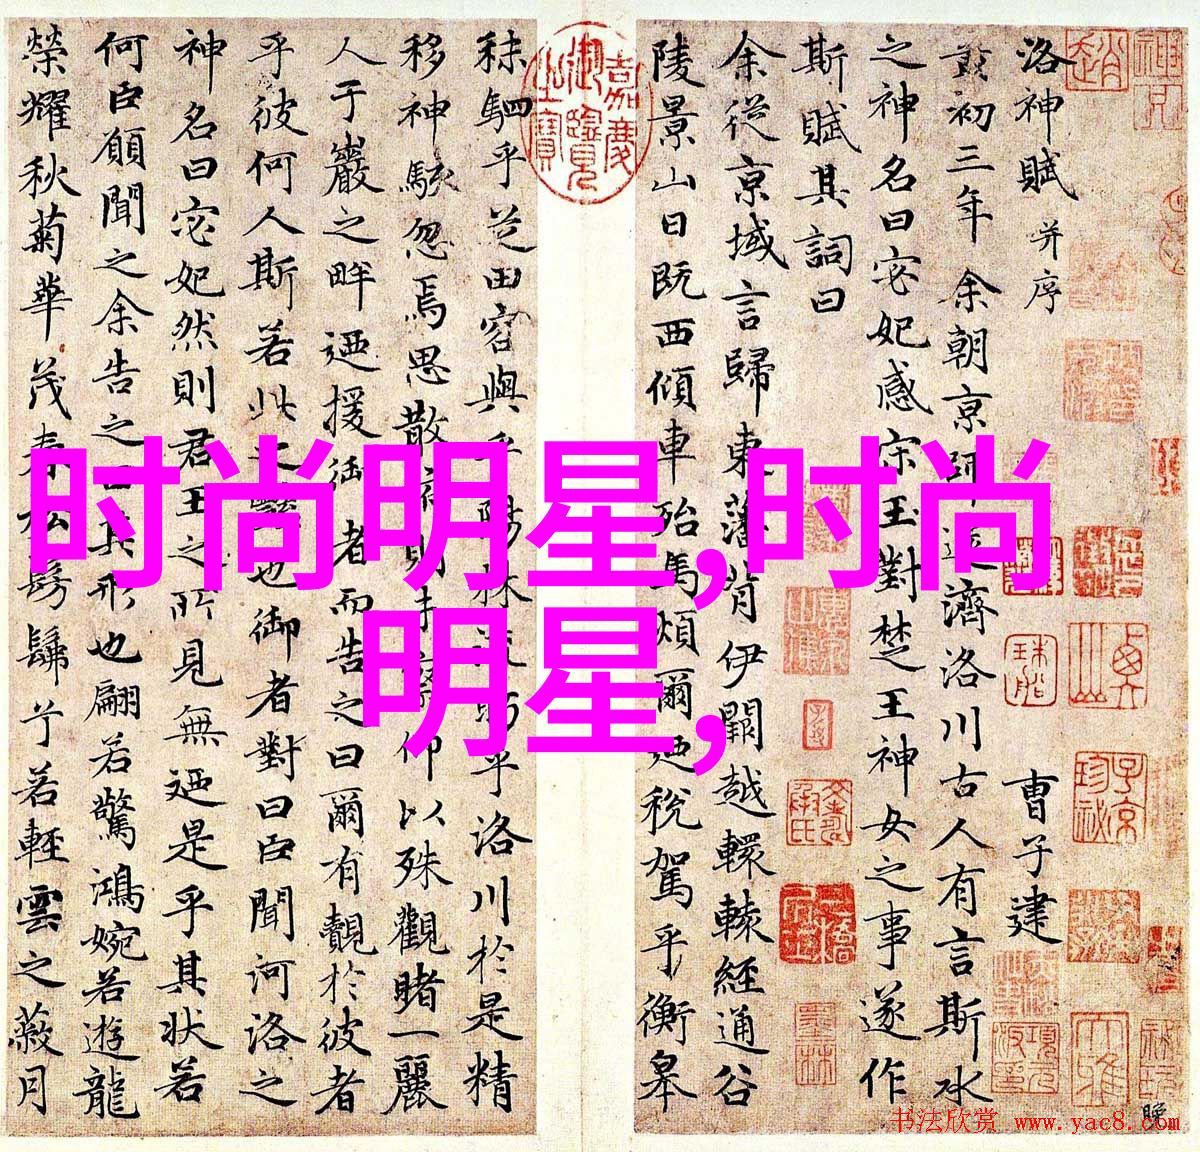 洛神賦 并序
曹子建
黃初三年余朝京師還濟洛川古人有言斯水
之神名曰宓妃感宋玉對楚王神女之事遂作
斯賦其詞曰
余從京域言歸東藩背伊闕越轘轅經通谷
陵景山日既西傾車殆馬煩爾迺稅駕乎衡皋
秣駟乎芝田容與乎陽林流眄乎洛川於是精
移神駭忽焉思散俯則未察仰以殊觀睹一麗
人于巖之畔迺援御者而告之曰爾有覿於彼者
乎彼何人斯若此之豔也御者對曰臣聞河洛之
神名曰宓妃然則君王之所見無迺是乎其狀若
何臣願聞之余告之曰其形也翩若驚鴻婉若遊龍
榮耀秋菊華茂春松髣髴兮若輕雲之蔽月
嘉慶御覽之寶
时尚明星,时尚
明星,
书法欣赏 www.yac8.com